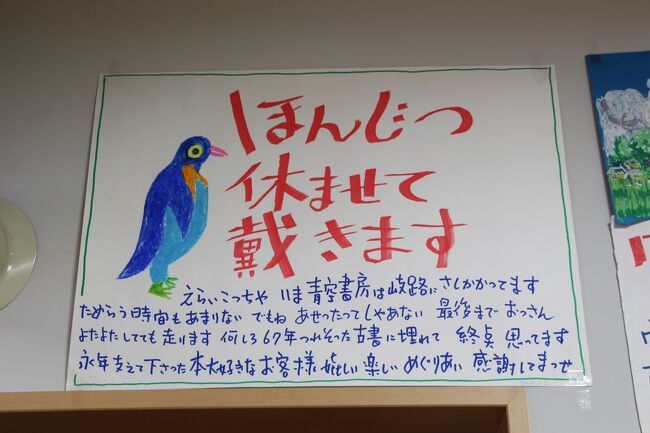 ほんじつ
休ませて
戴きます
えらいこっちゃ いま青空書房は岐路にさしかかってます
ためらう時間もあまりない でもね あせったってしゃあない 最後まで おっさん
よたよたしてても走ります 何しろ67年つれそった古書に埋れて 終点 思ってます
永年支えて下さった本大好きなお客様 嬉しい楽しい めぐりあい 感謝してまっせ